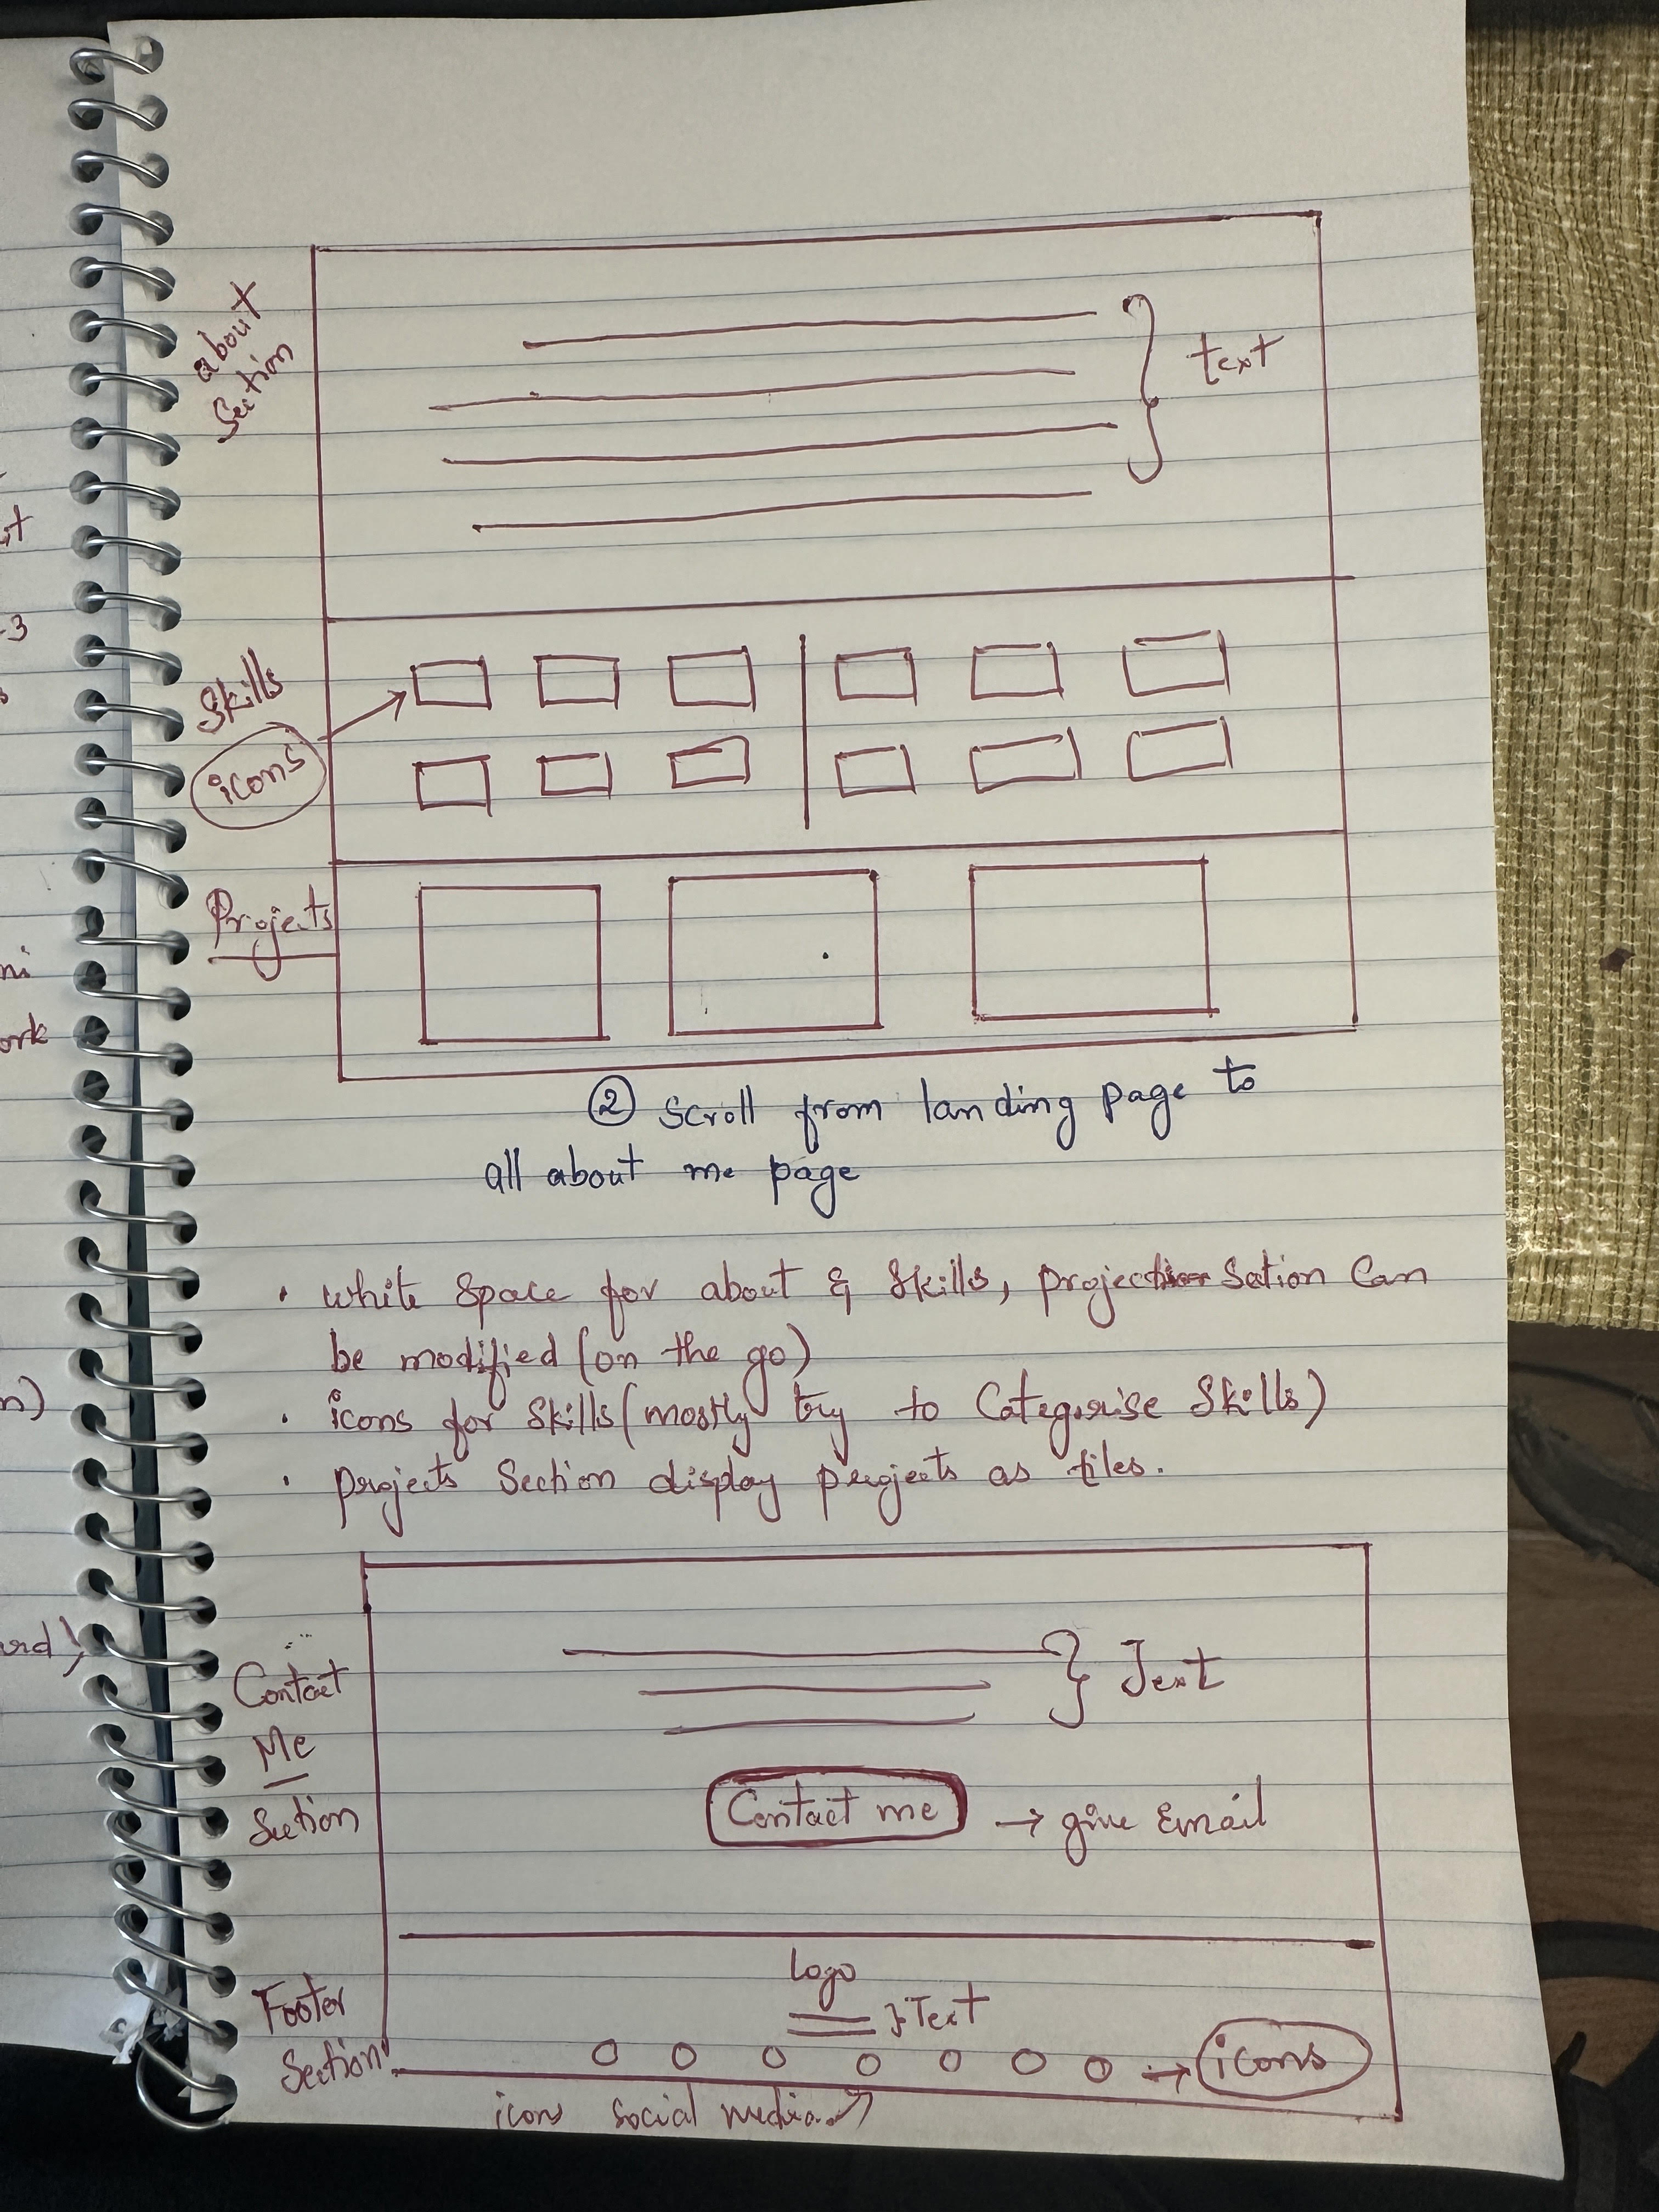 about
Section
text
Skills
icons
Projects
② Scroll from landing page to
all about me page
• white Space for about & Skills, project Section Can
be modified (on the go)
• icons for Skills (mostly try to Categorise Skills)
• projects Section display projects as tiles.
Contact
Me
Section
Text
Contact me → give Email
Footer
Section
Logo
} Text
→ icons
icons social media
st
-3
ni
ork
n)